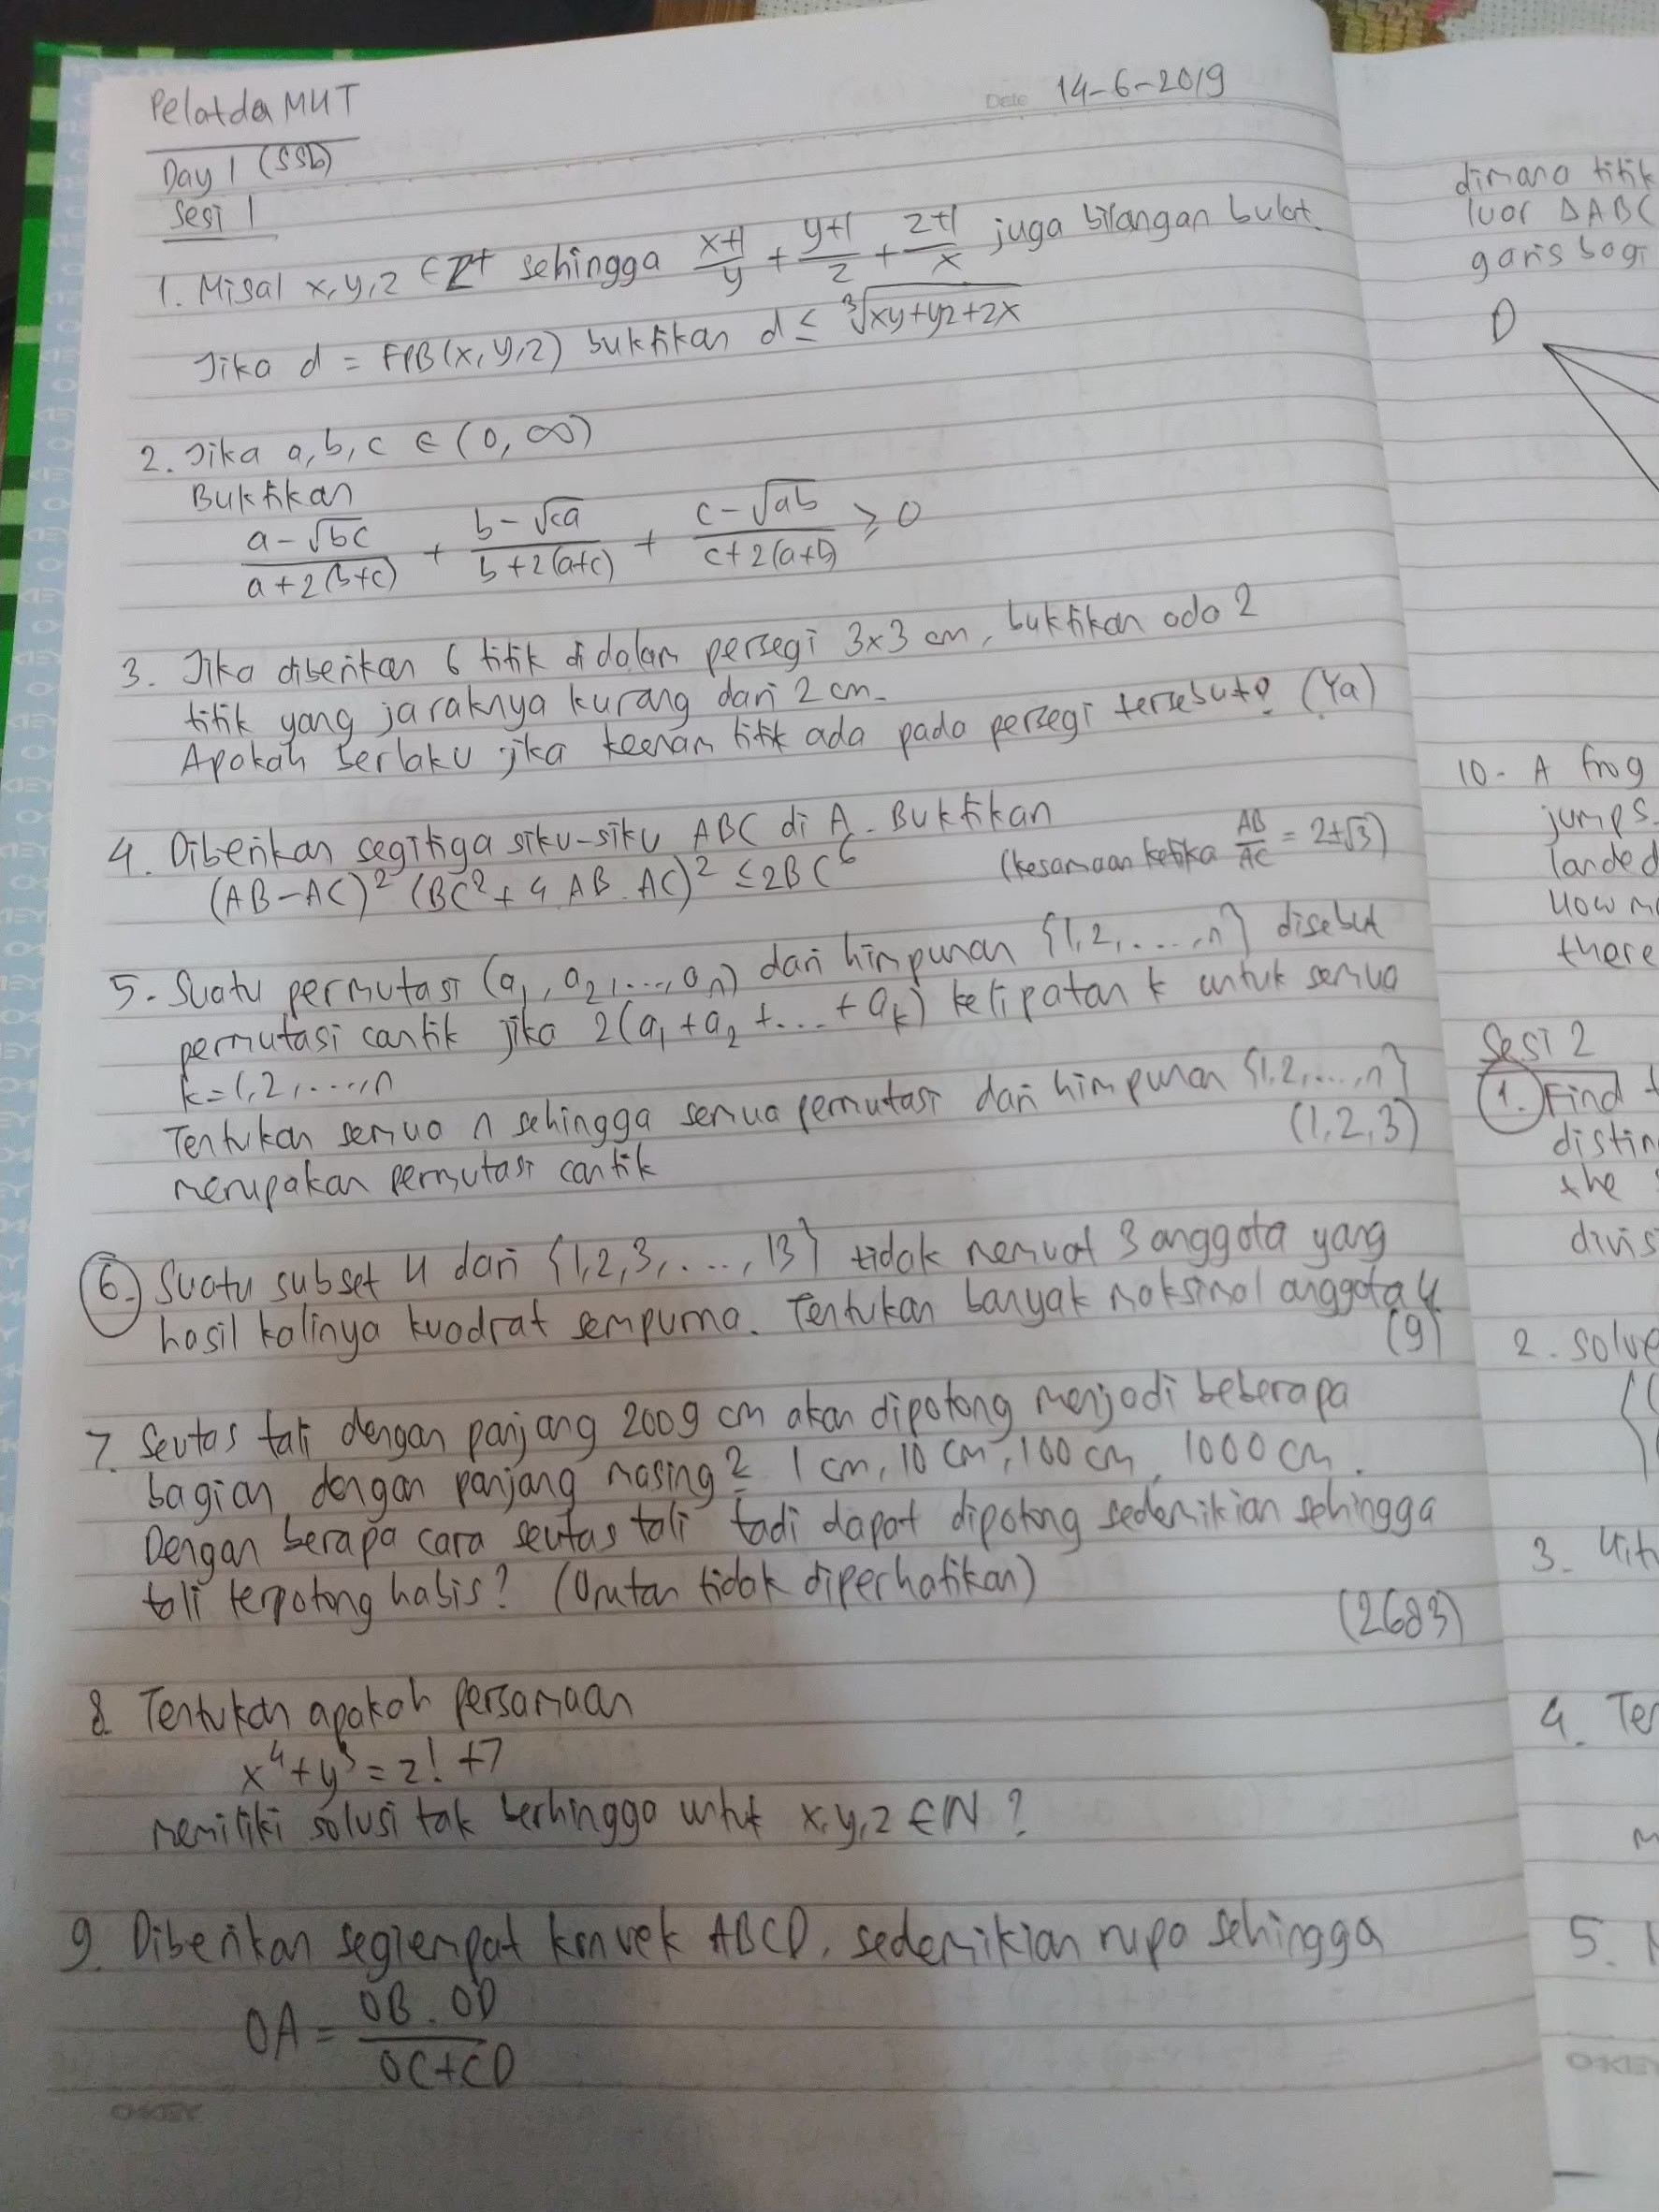 Pelatda MHT
Date 14-6-2019
Day 1 (SSB)
Sesi 1
1. Misal x, y, z ∈ Z+ sehingga \frac{x+1}{y} + \frac{y+1}{z} + \frac{z+1}{x} juga bilangan bulat.
Jika d = FPB(x, y, z) buktikan d ≤ ∛(xy+yz+zx)
2. Jika a, b, c ∈ (0, ∞)
Buktikan
\frac{a-√bc}{a+2(b+c)} + \frac{b-√ca}{b+2(a+c)} + \frac{c-√ab}{c+2(a+b)} ≥ 0
3. Jika diberikan 6 titik didalam persegi 3x3 cm, buktikan ada 2
titik yang jaraknya kurang dari 2 cm.
Apakah berlaku jika keenam titik ada pada persegi tersebut? (Ya)
4. Diberikan segitiga siku-siku ABC di A. Buktikan
(AB-AC)² (BC²+4 AB.AC)² ≤ 2BC⁶
(kesamaan ketika \frac{AB}{AC} = 2±√3)
5. Suatu permutasi (a₁, a₂, ..., aₙ) dari himpunan {1,2, ...., n} disebut
permutasi cantik jika 2(a₁+a₂+...+aₖ) kelipatan k untuk semua
k=1,2, ...., n
Tentukan semua n sehingga semua permutasi dari himpunan {1,2,...,n}
merupakan permutasi cantik
(1,2,3)
6. Suatu subset H dari {1,2,3, ..., 13} tidak memuat 3 anggota yang
hasil kalinya kuadrat sempurna. Tentukan banyak maksimal anggota H
(9)
7. Seutas tali dengan panjang 2009 cm akan dipotong menjadi beberapa
bagian dengan panjang masing² 1 cm, 10 cm, 100 cm, 1000 cm.
Dengan berapa cara seutas tali tadi dapat dipotong sedemikian sehingga
tali terpotong habis? (Urutan tidak diperhatikan)
(2683)
8. Tentukan apakah persamaan
x⁴+y³ = z! +7
memiliki solusi tak berhingga untuk x, y, z ∈ N?
9. Diberikan segiempat konvek ABCD, sedemikian rupa sehingga
OA = \frac{OB . OD}{OC+CD}
O-KEY
dimana titik
luar ΔABC
garis bagi
D
10. A frog
jumps.
landed
How m
there
Sesi 2
1. Find
distin
the
divis
2. Solve
3. Hit
4. Te
5.
O-KEY